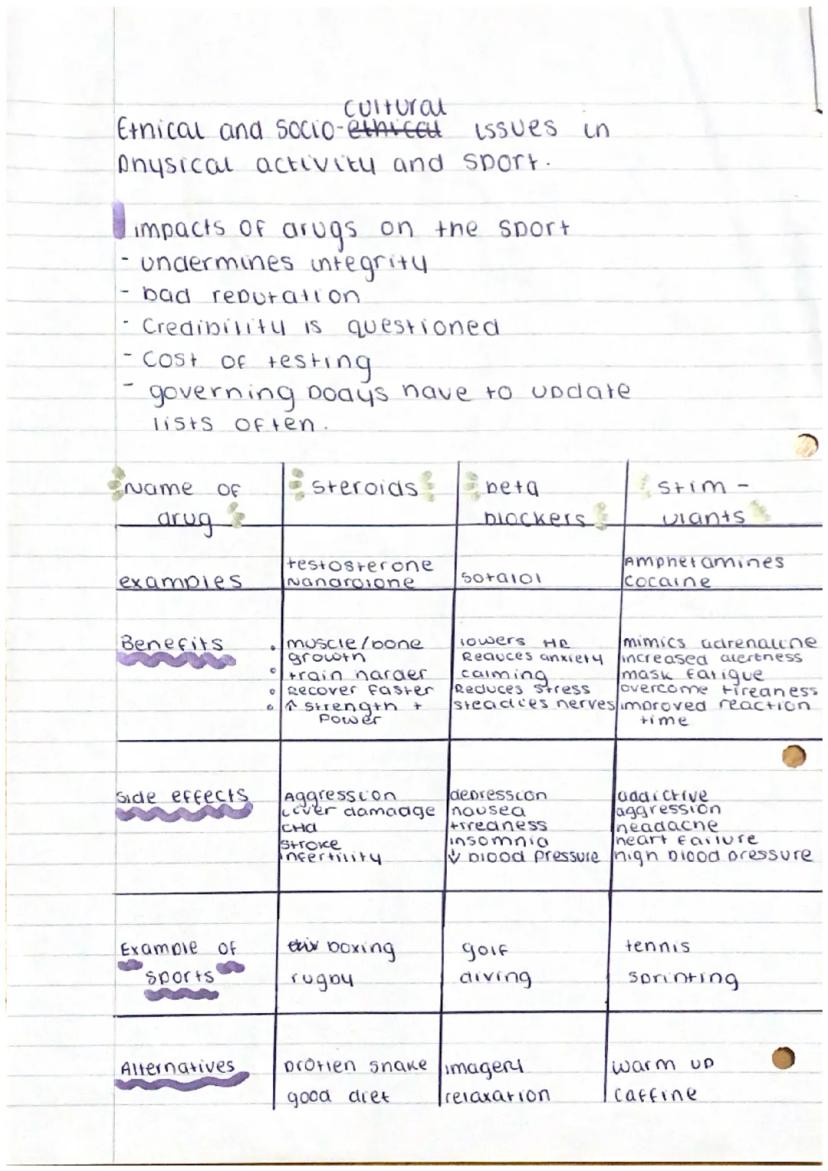 cultural
Ethical and socio-ethical issues in
physical activity and sport.
impacts of drugs on the sport
- undermines integrity
- bad reputation
- credibility is questioned
- cost of testing
- governing bodys have to update
lists often.
Name of drug | steroids | beta blockers | stim-ulants
examples | testosterone Nandrolone | sotalol | Amphetamines cocaine
Benefits
• muscle/bone growth
• train harder
• Recover faster
• ↑ strength + Power
lowers HR
Reduces anxiety
calming
Reduces stress
steadies nerves
mimics adrenaline
increased alertness
mask fatigue
overcome tiredness
improved reaction
time
side effects
Aggression
Liver damadge
CHd
stroke
infertility
depression
nausea
tiredness
insomnia
↓ blood pressure
addictive
aggression
headache
heart failure
high blood pressure
Example of
sports
boxing
rugby
golf
diving
tennis
sprinting
Alternatives
protien shake
good diet
imagery
relaxation
warm up
caffine